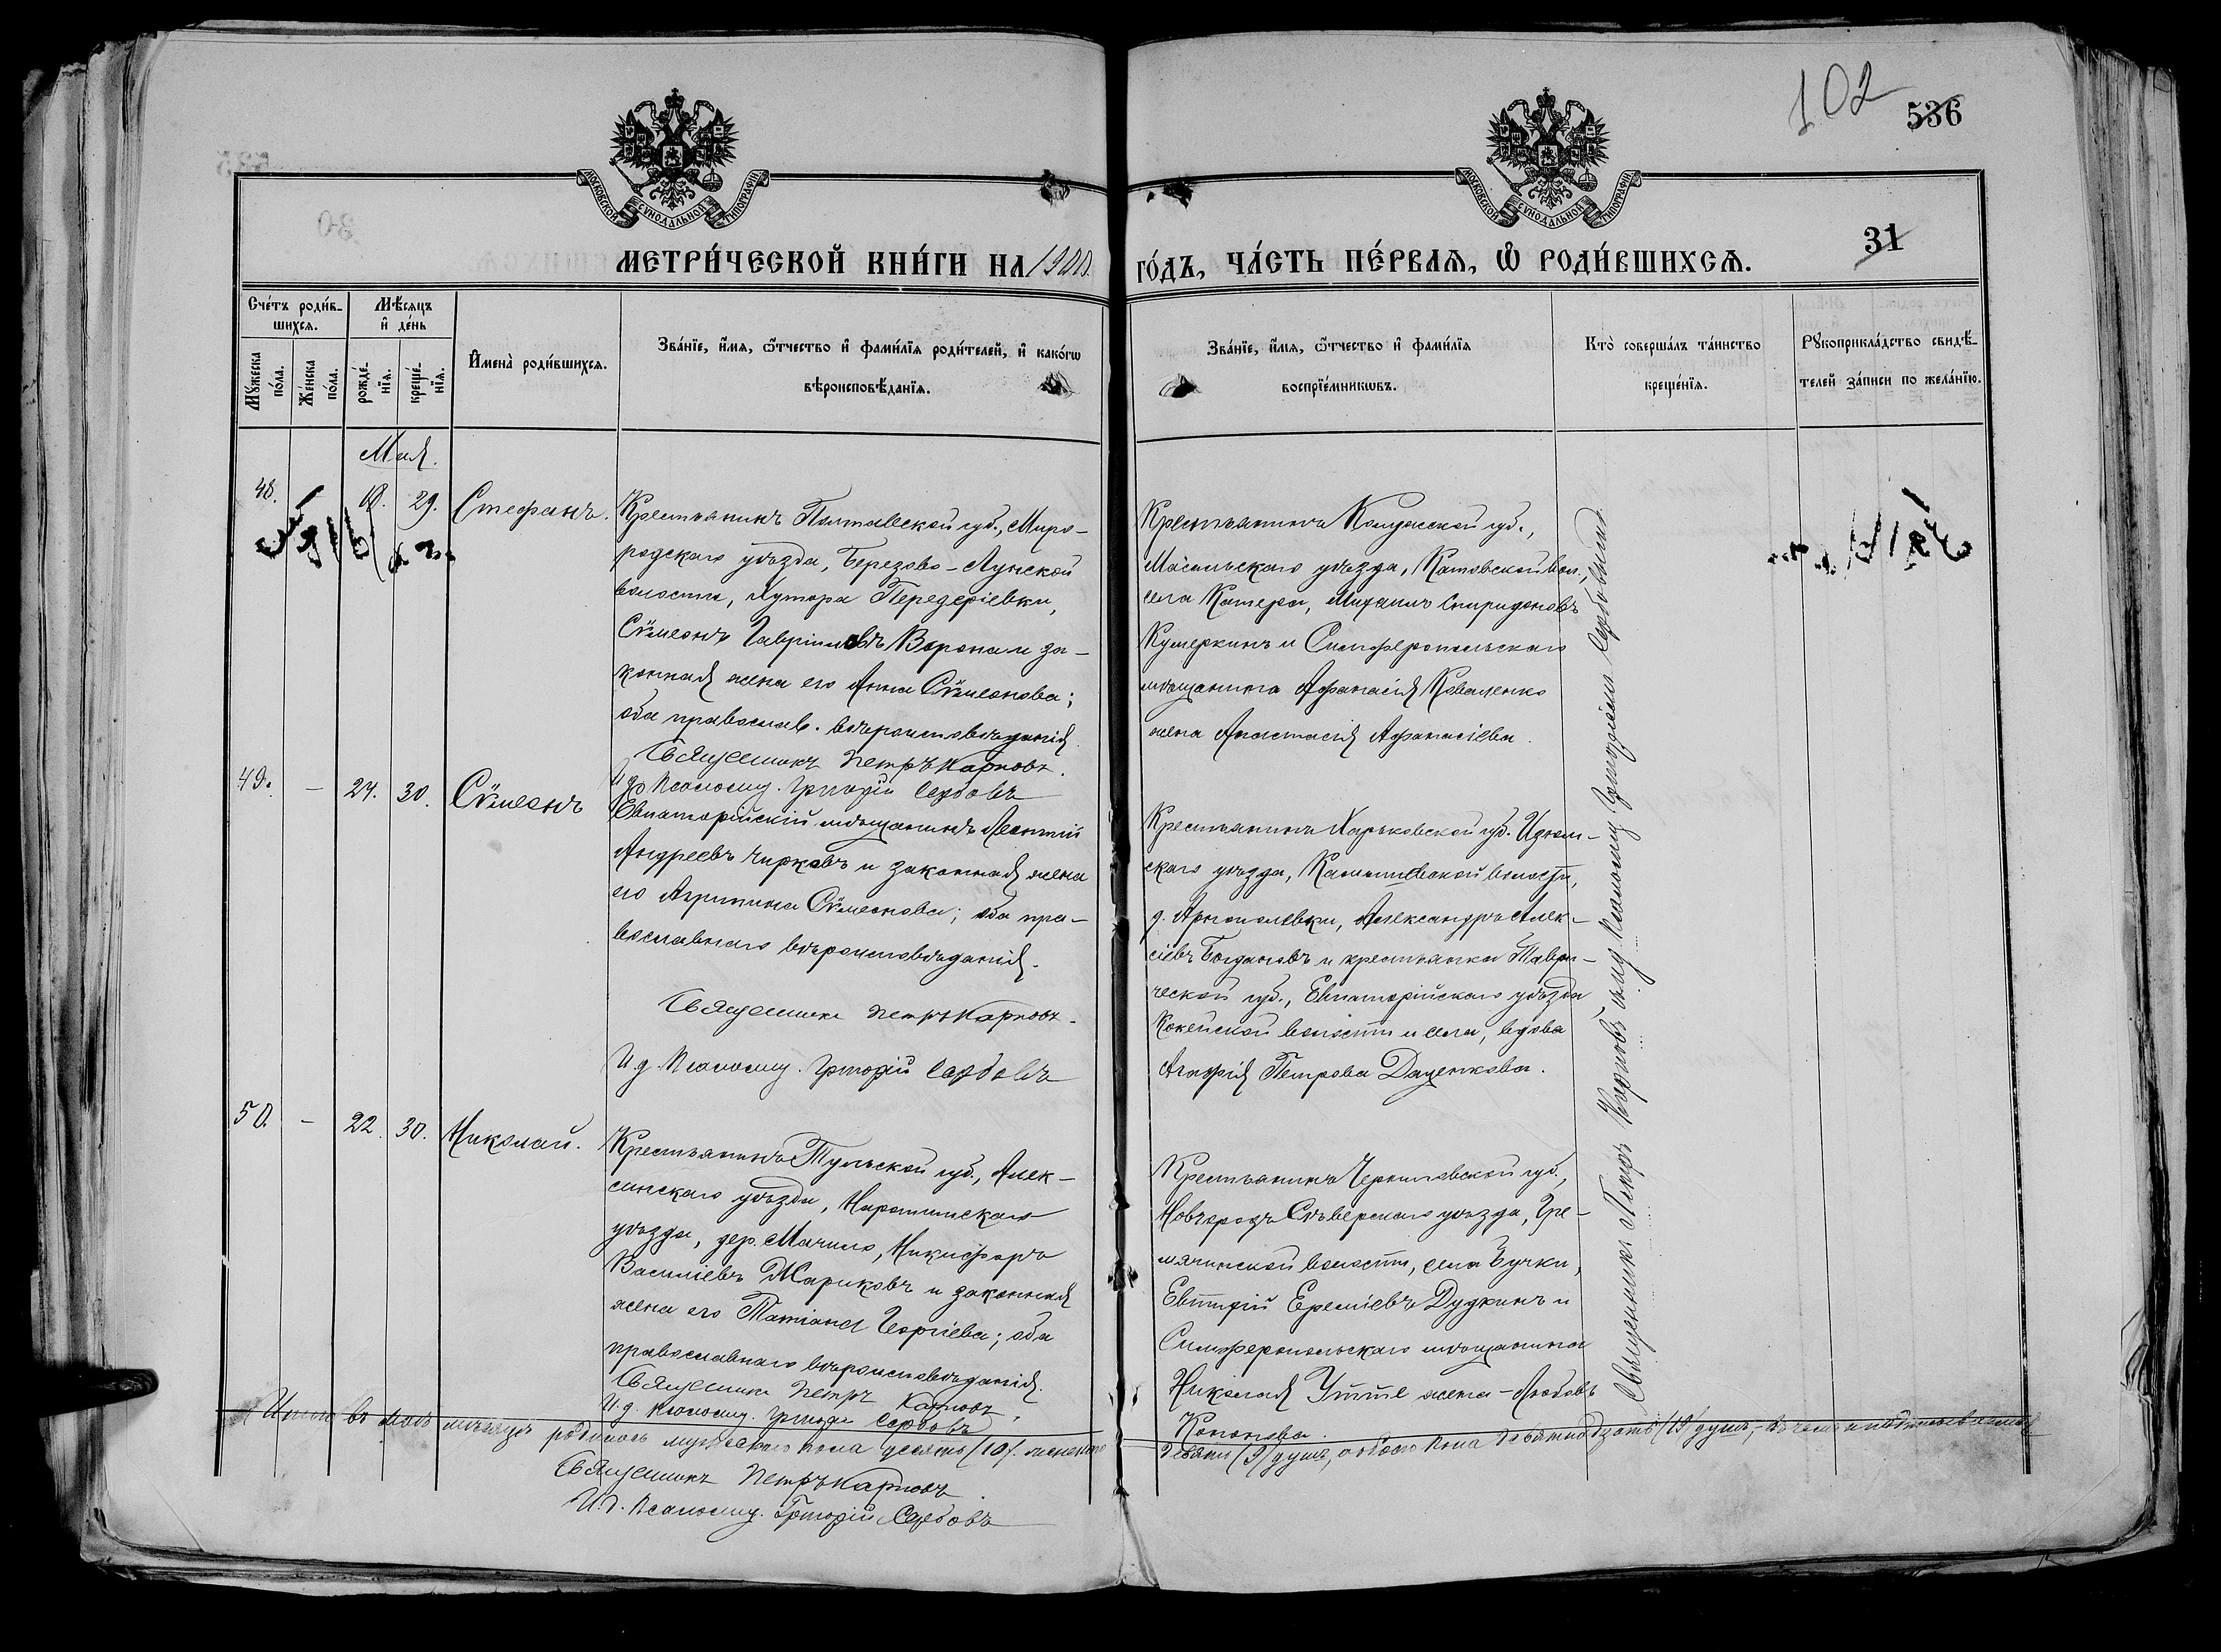 102
536
МОСКОВСКОЙ СѴНОДАЛЬНОЙ ТИПОГРАФІИ
МОСКОВСКОЙ СѴНОДАЛЬНОЙ ТИПОГРАФІИ
31
МЕТРИ́ЧЕСКОЙ КНИ́ГИ НА 1900
ГО́ДЪ, ЧА́СТЬ ПЕ́РВАЯ, Ѡ РОДИ́ВШИХСЯ.
Сче́тъ роди́в-
шихся.
Мѣ́сяцъ
и҆ де́нь
Мꙋ́жеска
по́ла.
Же́нска
по́ла.
рожде́-
нїя.
креще́-
нїя.
И҆мена̀ роди́вшихся.
Зва́нїе, и҆́мя, ѻ҆́тчество и҆ фами́лїя роди́телей, и҆ како́гѡ
вѣроисповѣ́данїя.
Зва́нїе, и҆́мя, ѻ҆́тчество и҆ фами́лїя
воспрїе́мникѡвъ.
Кто̀ соверша́лъ та́инство
креще́нїя.
Рꙋкоприкла́дство свидѣ́-
телей за́писи по жела́нїю.
Мая.
48.
29.
Стефанъ.
Крестьянинъ Полтавской губ., Мирго-
родскаго уѣзда, Березово-Лукской
волости, хутора Передеріевки,
Сѵмеонъ Гавріиловъ Ворона и за-
конная жена его Анна Сѵмеонова;
оба православ. вѣроисповѣданія.
Священникъ Петръ Карповъ.
И д Псаломщ. Григорій Сербовъ
Крестьянинъ Калужской губ.,
уѣзда, вол.,
села Михаилъ Спиридоновъ
и Симферопольскаго
мѣщанина Афанасія Коваленко
жена Анастасія Афанасіева.
49. - 24. 30. Сѵмеонъ
Евпаторійскій мѣщанинъ Леонтій
Андреевъ Чирковъ и законная жена
его Агрипина Сѵмеонова; оба пра-
вославнаго вѣроисповѣданія.
Священникъ Петръ Карповъ.
И д. Псаломщ. Григорій Сербовъ
Крестьянинъ Харьковской губ. Изюм-
скаго уѣзда, волости,
д. Александръ Алек-
сіевъ Богдановъ и крестьянка Таври-
ческой губ., Евпаторійскаго уѣзда
волости и села, вдова
Агафія Петрова Даценкова.
50. - 22. 30. Николай.
Крестьянинъ Тульской губ., Алек-
синскаго уѣзда,
уѣзда, дер. Никифоръ
Василіевъ Жариковъ и законная
жена его Татіана Георгіева; оба
православнаго вѣроисповѣданія.
Священникъ Петръ Карповъ,
И.д. Псаломщ. Григорій Сербовъ
Крестьянинъ Черниговской губ.,
Новгородъ Сѣверскаго уѣзда, Гре-
мячинской волости, села Бучки,
Евтихій Ереміевъ Дудкинъ и
Симферопольскаго мѣщанина
Николая жена - Любовь
Кононова.
Священникъ Петръ Карповъ и.м.д. Псаломщ Григорій Сербовъ
Итого въ Маѣ мѣсяцѣ родилось мужескаго пола десять (10), женскаго
девять (9) душъ, обоего пола девятнадцать (19) душъ,- въ чемъ и подписываемся
Священникъ Петръ Карповъ.
И.д. Псаломщ. Григорій Сербовъ